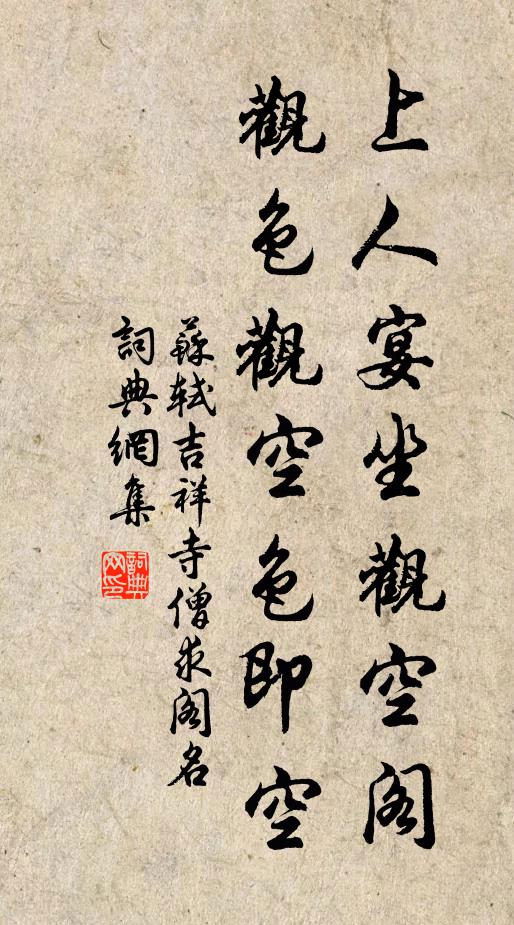 上人宴坐觀空閣
觀色觀空色即空
蘇軾吉祥寺僧求閣名
詞典網集
詞典網印